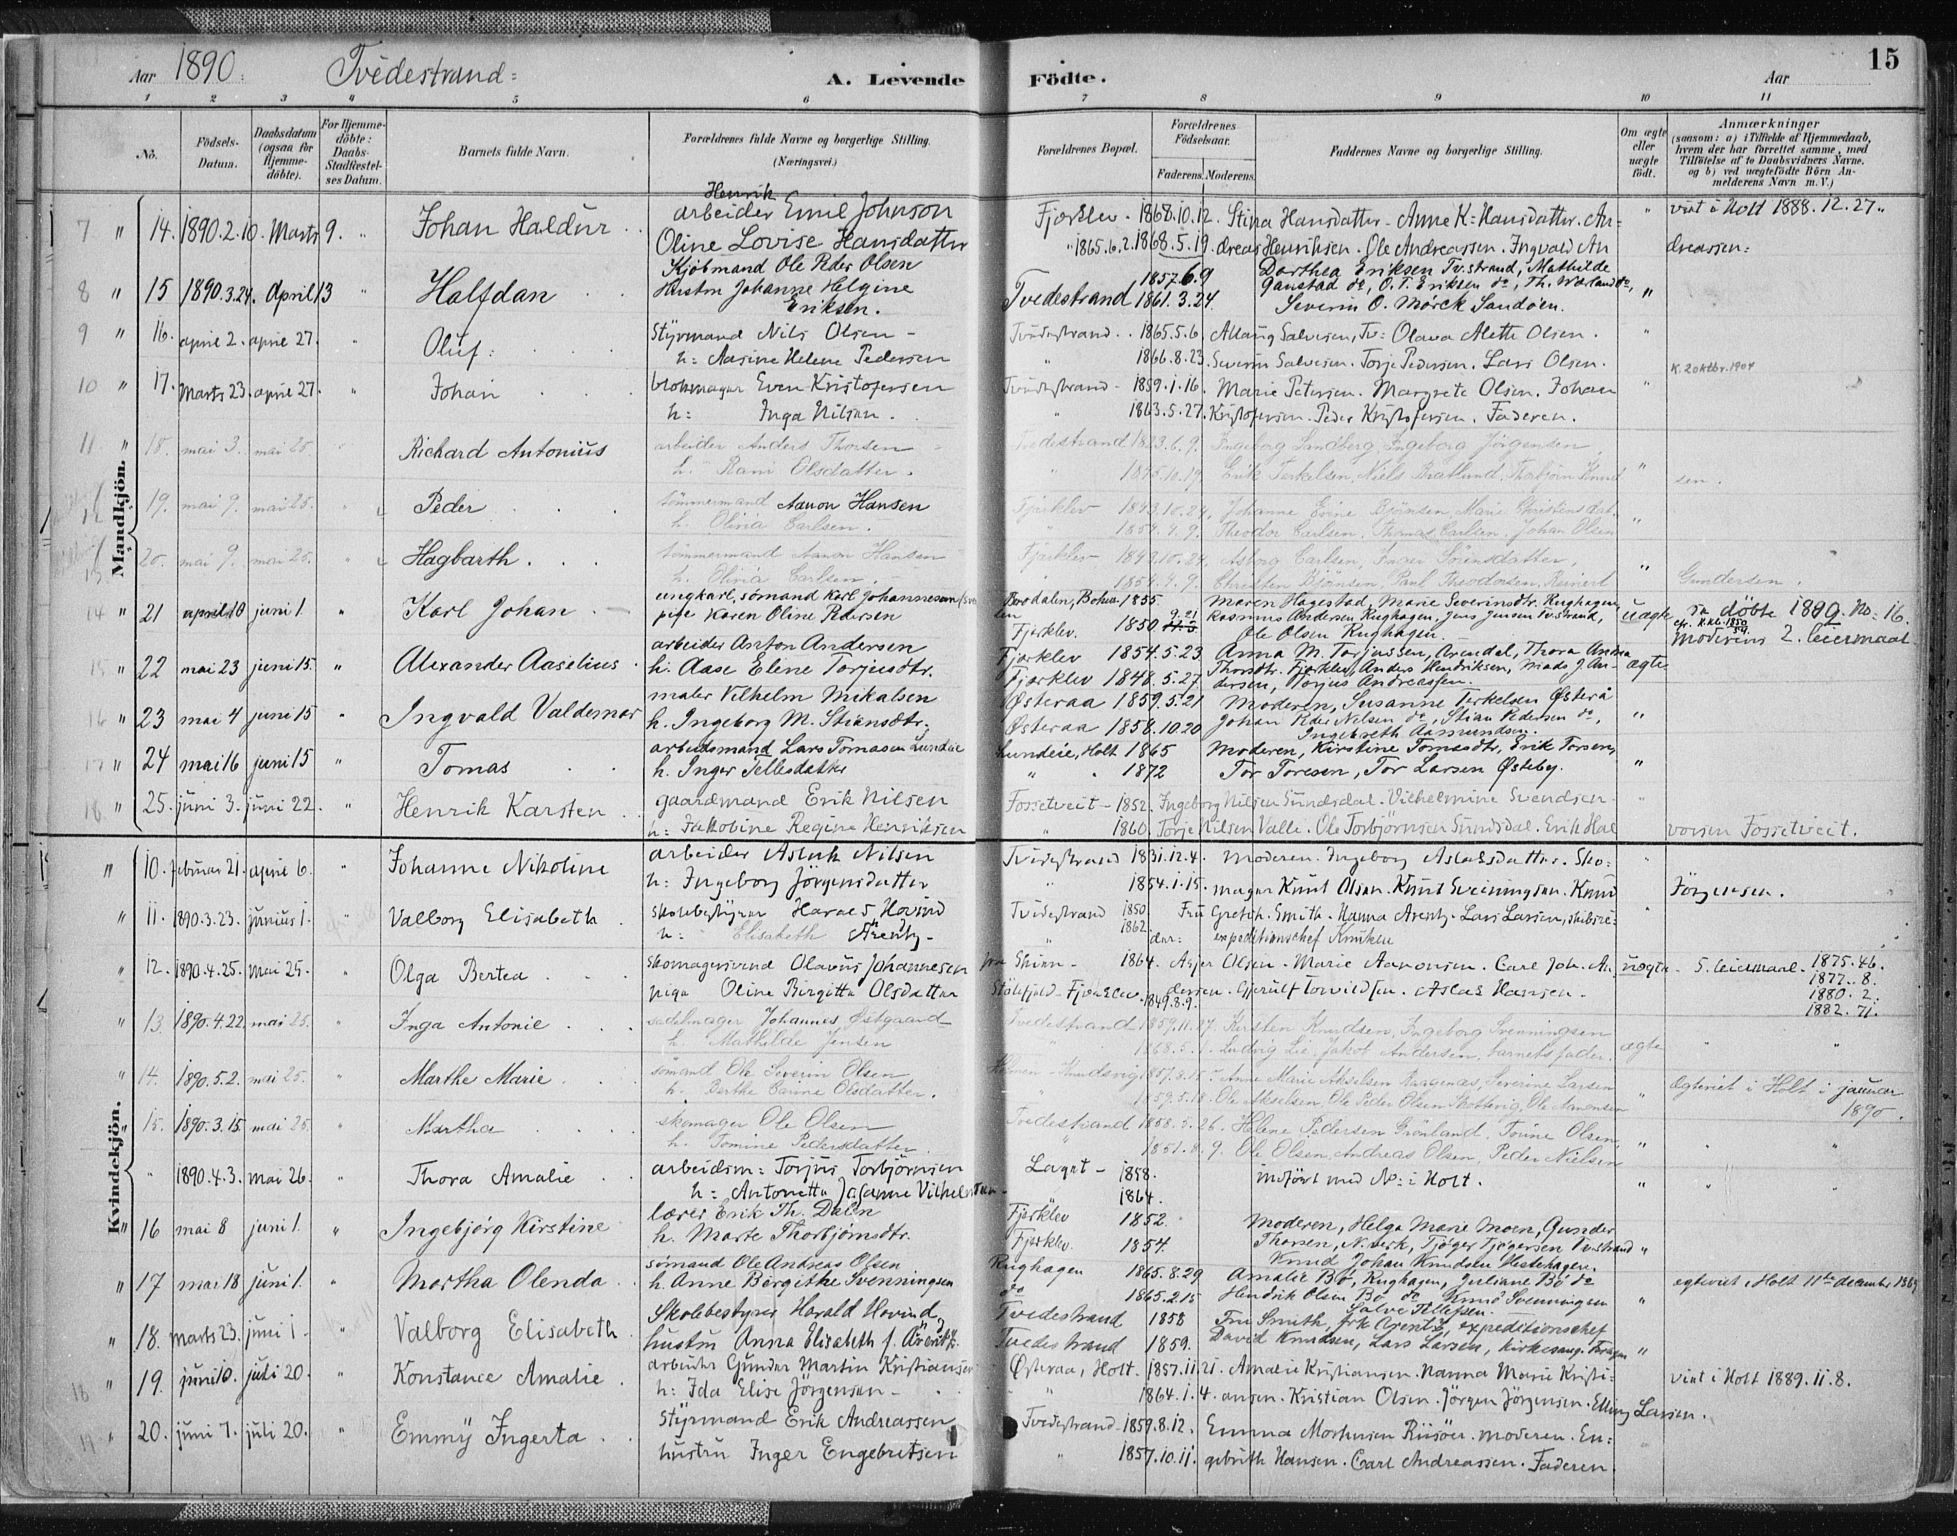 Aar 1890. Tvedestrand: A. Levende Födte. Aar 15
1 2 3 4 5 6 7 8 9 10 11
No. Födsels-Datum. Daabsdatum (ogsaa for Hjemme-döbte). For Hjemme-döbte: Daabs-Stadfæstel-ses Datum. Barnets fulde Navn. Forældrenes fulde Navne og borgerlige Stilling. (Næringsvei.) Forældrenes Bopæl. Forældrenes Födselsaar. Faderens. Moderens. Faddernes Navne og borgerlige Stilling. Om ægte eller uægte födt. Anmærkninger (saasom: a) i Tilfælde af Hjemmedaab, hvem der har forrettet samme, med Tilföielse af to Daabsvidners Navne, og b) ved uægtefödte Börn An-melderens Navn m. V.)
Mandkjön.
Henrik
7 " 14. 1890.2.10. Marts 9. " Johan Haldur arbeider Emil Johnson Fjærklev. 1868.10.12. Stina Hansdatter. Anne K: Hansdatter. An- " viet i Holt 1888.12.27.
Oline Lovise Hansdatter " 1865.6.2. 1868.5.19. dreas Henriksen. Ole Andreassen. Ingvald An dreassen:
Kjöbmand Ole Peder Olsen 1857.6.9 Dorthea Eriksen Tv.strand, Mathilde
8 " 15 1890.3.24. April 13 " Halfdan Hustru Johanne Helgine Tvedestrand 1861.3.24. Ganstad do, O. T. Eriksen do, Th. Warland do, "
Eriksen. Severin O. Mørck Sandöen.
9 " 16. april 2. april 27. " Oluf: Styrmand Nils Olsen - Tvedestrand. 1865.5.6. Salvesen, Tv: Olava Alette Olsen. "
h: Aasine Helene Pedersen " 1866.8.23. Severin Salvesen. Torje Pedersen. Lars Olsen.
10 " 17. Marts 23. april 27. " Johan blokmager Even Kristofersen Tvedestrand - 1859.1.16. Marie Petersen. Margrete Olsen. Johan " K. 2 oktbr. 1904
h: Inga Nilsen. " 1863.5.27. Kristofersen. Peder Kristofersen. Faderen.
11 " 18. mai 3. mai 25. " Richard Antonius arbeider Anders Thorsen Tvedestrand Ingeborg Sandberg, Ingeborg Jørgensen
h. Olsdatter. " Erik Terkelsen, Niels Thorbjörn Knud sen.
12 19. mai 9. mai 25. " Peder tömmermand Aanon Hansen Fjærklev Johanne Bjönsen, Marie
h. Olivia Carlsen. " 1854.4.9. Theodor Carlsen, Thomas Carlsen Johan Olsen "
13 20. mai 9. mai 25. Hagbarth. tömmermand Aanon Hansen Fjærklev Carlsen, Inger Sörensdatter,
h. Olivia Carlsen. " 1854.4.9. Christen Bjönsen, Paul Theodorsen, Reinert " Gundersen.
14 " 21 april 10 juni 1. " Karl Johan ungkarl, sømand Karl Johannesen Brodalen, Bohus 1855 Maren Hagestad, Marie Severinsdtr. Rughagen, uægte
pige Karen Oline Pedersen Fjerklev. 1850 9.21 Rasmus Andersen Rughagen, Jens Jensen Tv.strand, döbte 1890. No. 16.
Ole Olsen Rughagen. Moderens 2. leiermaal
15 " 22 mai 23 juni 15. " Alexander Aaselius arbeider Anton Andersen Fjærklev 1854.5.23 Anna M. Torjussen, Arendal, Thora Anna
h: Aase Elene Torjusdtr. Fjærklev 1848.5.27 Thorsdtr. Fjerklev, Anders Hendriksen, Mads J. An- ægte
dersen, Torjus Andreassen.
16 " 23 mai 4 juni 15 " Ingvald Valdemar maler Vilhelm Mikalsen Østeraa 1859.5.21 Moderen, Susanne Terkelsen Østerå
h. Ingeborg M. Stiansdtr. Østeraa 1858.10.20 Johan Peder Nilsen do, Stian Pedersen do, "
Ingebreth Aamundsen.
17 " 24 mai 16 juni 15 " Tomas arbeidsmand Lars Tomasen Lundeie Lundeie, Holt 1865 Moderen, Kirstine Tomasdtr, Erik Torsen,
h. Inger Tellefsdatter " 1872 Tor Toresen, Tor Larsen Østeby. "
18 25. juni 3. juni 22. " Henrik Karsten gaardmand Erik Nilsen Fossetveit - 1852. Ingeborg Nilsen Sundsdal. Vilhelmine Svendsen. "
h: Jakobine Regine Henriksen " 1860. Torje Nilsen Valle. Ole Torbjörnsen Sundsdal. Erik Hal vorsen Fossetveit.
Kvindekjön.
" 10. februar 21. april 6. " Johanne Nikoline arbeider Aslak Nilsen Tvedestrand 1831.12.4. Moderen. Ingeborg Aslaksdatter. Sko: "
h: Ingeborg Jörgensdatter " 1854.1.15. mager Knut Olsen. Knut Sveiningsen. Knud Jörgensen.
" 11. 1890.3.23. junius 1. " Valborg Elisabeth skolebestyrer Harald Hovind Tvedestrand 1850. Fru Grethe Smith. Hanna Arentz. Lars Larsen, skibsre: "
h: Elisabeth Arentz - " 1862. der: expeditionschef Knutsen
" 12. 1890.4.25. Mai 25. " Olga Bertea skomagersvend Olavus Johannesen fra Skien - 1864. Olsen. Marie Aanonsen. Carl Joh. An uægte 5. leiermaal. 1875.46.
pige Oline Birgitte Olsdatter Fjærklev. 1849.8.9. dersen. Aslak Hansen. 1877.8.
1880.2.
" 13. 1890.4.22. mai 25. " Inga Antonie sadelmager Johannes Østgaard Tvedestrand 1857.11.27. Kirsten Knudsen, Ingeborg Svenningsen 1882.71.
h. Mathilde Jensen " 1868.5.1. Ludvig Lie, Jakob Andersen, barnets fader. ægte " "
" 14. 1890.5.2. mai 25. Marthe Marie sömand Ole Severin Olsen Anne Marie Akselsen, Severine Larsen " Ægteviet i Holt i januar
h. Berthe Olsdatter. " Ole Akselsen, Ole Peder Olsen, Ole Aanonsen 1890.
" 15. 1890.3.15. mai 25. " Martha skomager Ole Olsen Tvedestrand 1858.5.26. Helene Pedersen Grönland, Tomine Olsen,
h. Tomine Pedersdatter. " 1851.8.9. Ole Olsen, Andreas Olsen, Peder Nielsen " " "
" 1890.4.3. mai 26. " Thora Amalie arbeidsm: Torjus Torbjörnsen Laget - 1858. indfört med No: i Holt. " " "
h: Antonette 1864.
" 16 mai 8 juni 1. " Ingebjörg Kirstine lærer Erik Th. Dalen Fjærklev 1852. Moderen, Helga Marie Moen, Gunder
h. Marte Thorbjörnsdtr. Fjerklev. 1854. Thorsen, N.verk, Tjöger Tjögersen Tv.strand "
Knud Johan Knudsen Hestehagen.
" 17 mai 18 juni 1. " Martha Olenda sømand Ole Andreas Olsen Rughagen 1865.8.29 Amalie Bö, Rughagen, Juliane Bö do ægteviet i Holt 11te december 1889
h. Anne Birgithe Svenningsen do 1865.2.15 Hendrik Olsen Bö do Knud Svenningsen "
Salve Tellefsen.
" 18. marts 23. juni 1. " Valborg Elisabeth Skolebestyrer Harald Hovind Tvedestrand 1858 Fru Smith, frk Arentz, expeditionschef
hustru Anna Elisabeth f. Arentz. Tvedestrand 1859. David Knudsen, Lars Larsen, "
18 " 19. juni 10. juli 20. " Konstance Amalie arbeider Gunder Martin Kristiansen Østeraa, Holt. 1857.11.21. Amalie Kristiansen. Nanna Marie Kristi: viet i Holt 1889.11.8.
h: Ida Elise Jörgensen - " 1864.1.4. ansen. Kristian Olsen. Jörgen Jörgensen. Elling Larsen.
19 " 20. juni 7. juli 20. " Emmy Ingerta Styrmand Erik Andreassen Tvedestrand - 1859.8.12. Emma Mortensen Riisöer. Moderen. En:
hustru Inger Engebretsen " 1857.10.11. gebrith Hansen. Carl Andreassen. Faderen. "